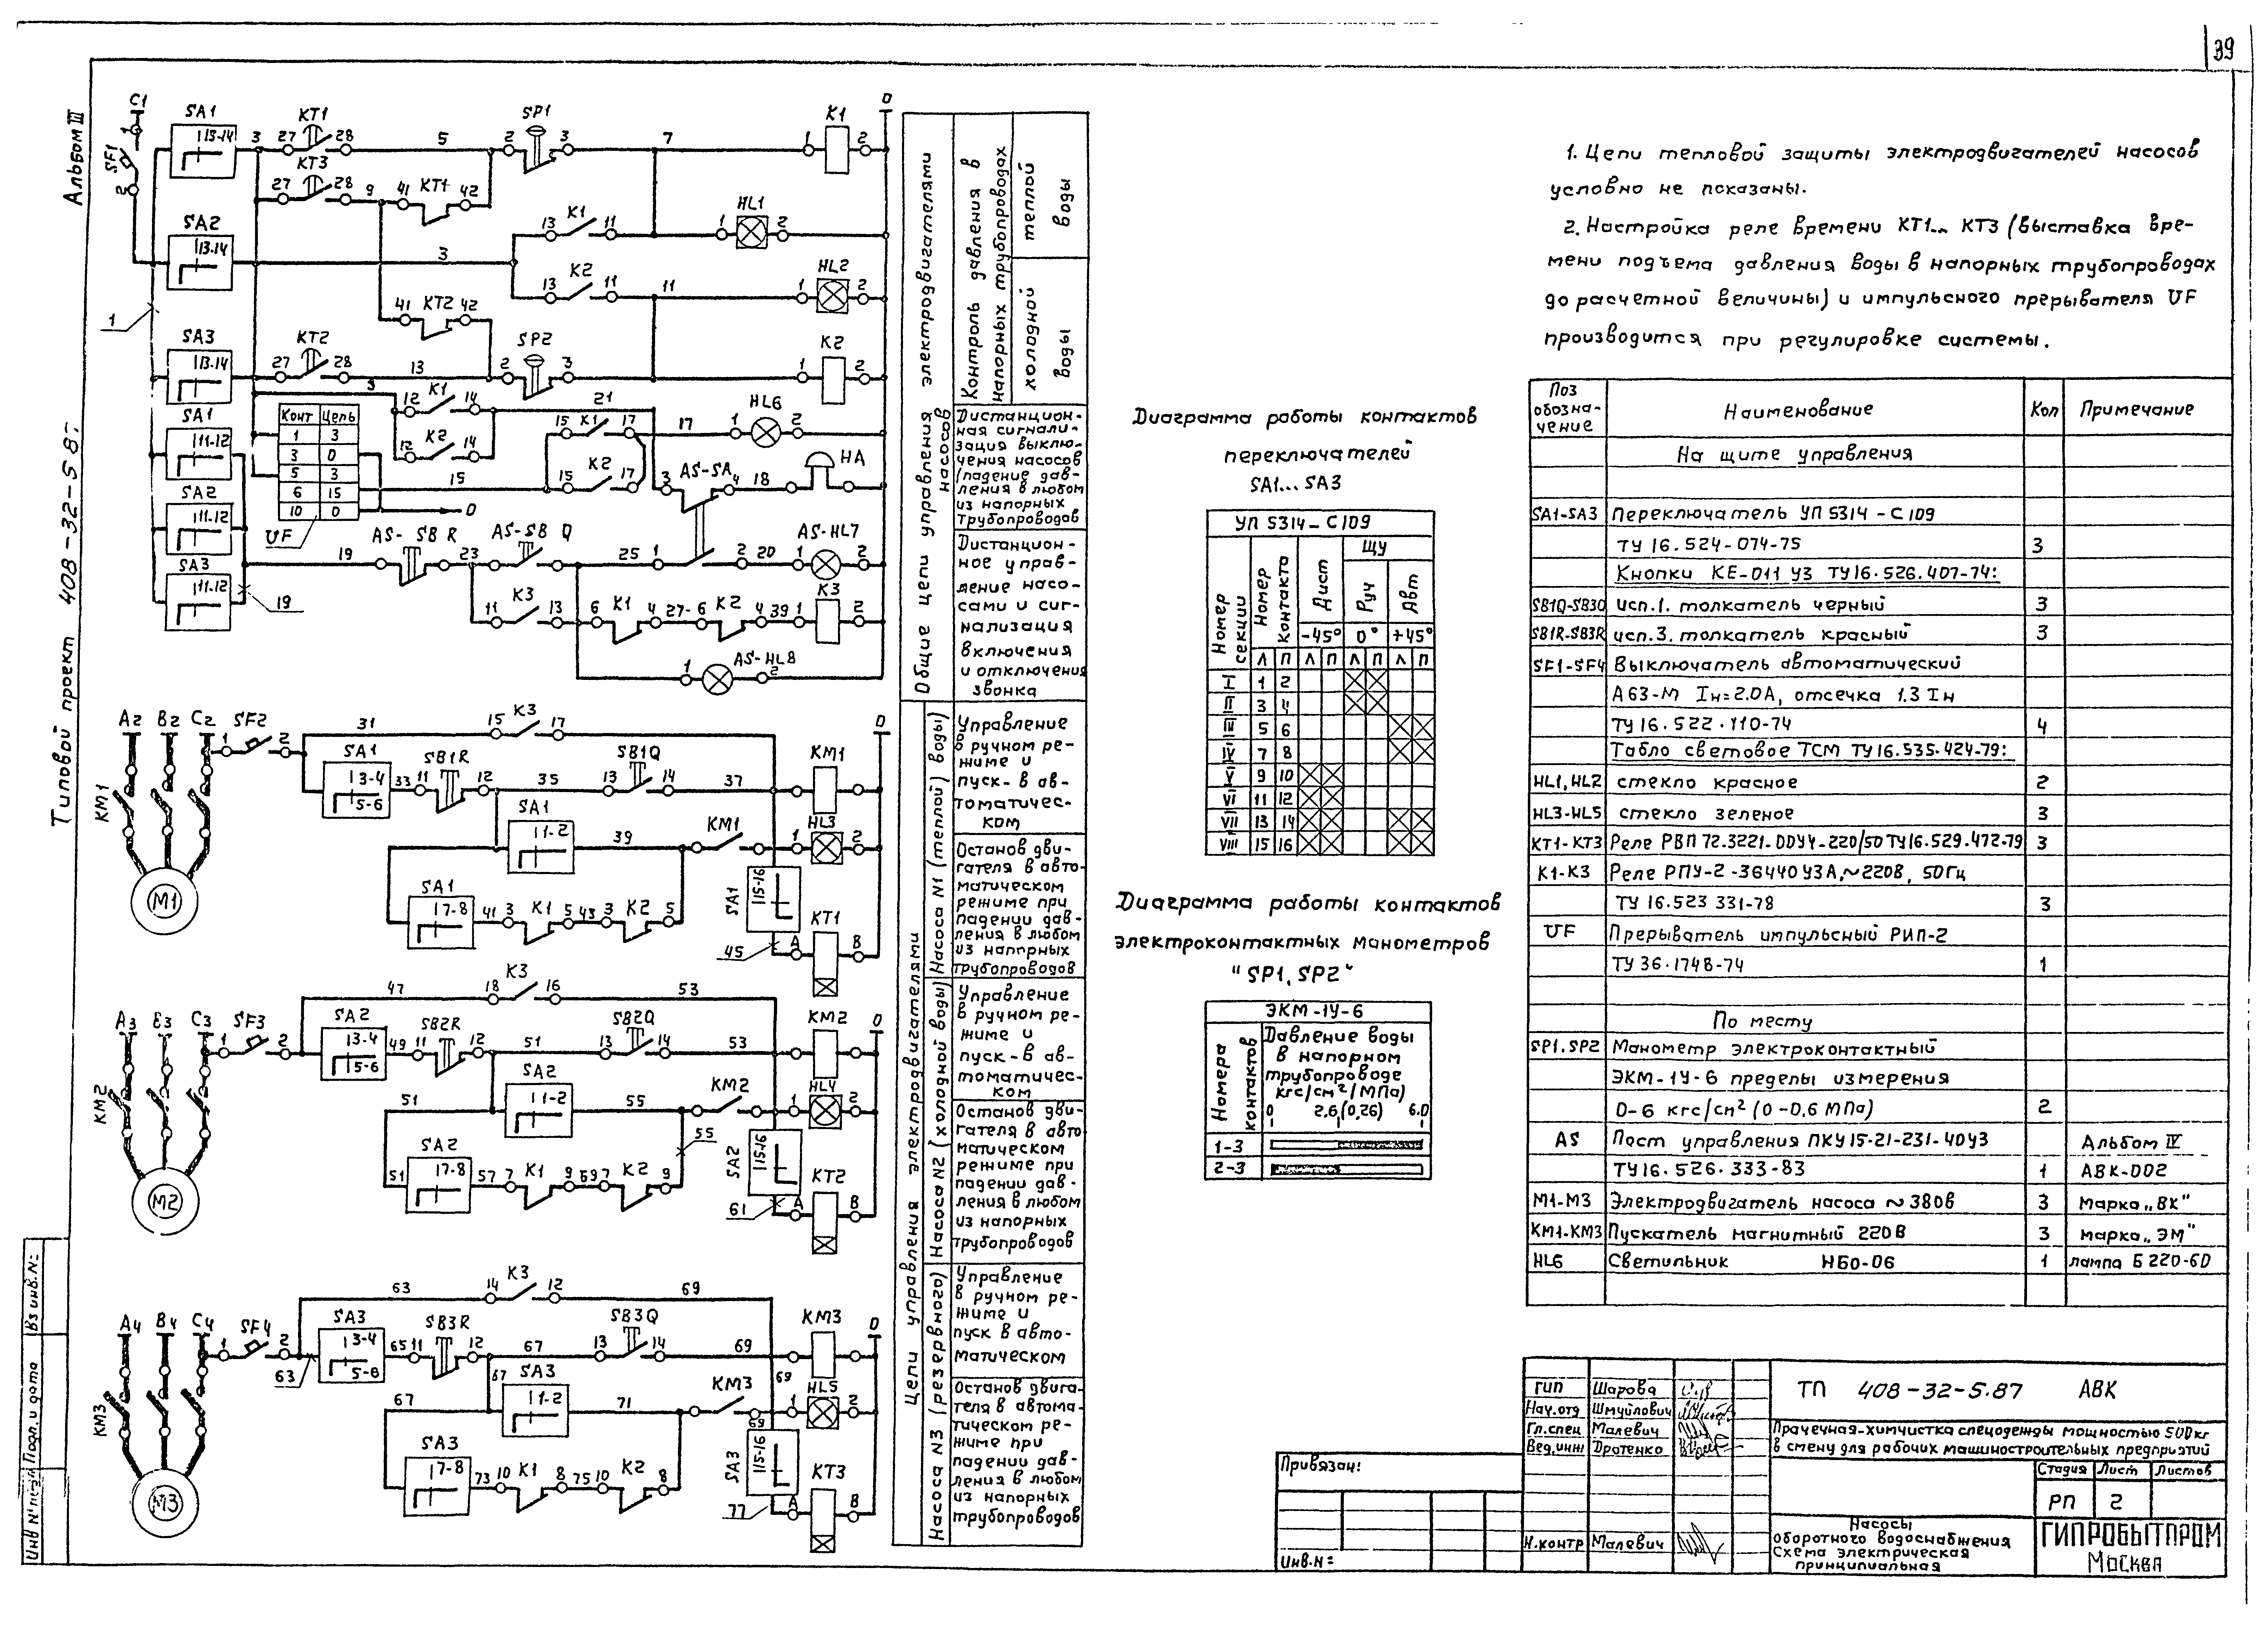 39
Альбом III
Типовой проект 408-32-5.87
Взинв.N:
Подп. и дата
Инв N подл
C1
SF1
SA1
13-14
KT1
27
28
KT3
27
28
5
9
41 KT1 42
SP1
2
3
7
K1
1
2
0
SA2
13-14
3
13 K1 11
HL1
1
2
13 K2 11
11
HL2
1
2
41 KT2 42
1
SA3
13-14
KT2
27
28
13
SP2
2
3
K2
1
2
3
12 K1 14
21
12 K2 14
SA1
11-12
SA2
11-12
SA3
11-12
Конт Цепь
1 3
3 0
5 3
6 15
10 0
0
UF
15
15 K1 17
17
HL6
1
2
15 K2 17
3 AS-SA 4 18
HA
19
AS-SB R
23
AS-SB Q
25
1
2
20
AS-HL7
19
11 K3 13
6 K1 4
27
6 K2 4
39
1 K3 2
1 AS-HL8 2
Общие цепи управления электродвигателями насосов
Контроль давления в напорных трубопроводах
теплой воды
холодной воды
Дистанцион-
ная сигнали-
зация выклю-
чения насосов
(падение дав-
ления в любом
из напорных
трубопроводов
Дистанцион-
ное управ-
ление насо-
сами и сиг-
нализация
включения
и отключения
звонка
A2 B2 C2
SF2
1
2
31
15 K3 17
SA1
3-4
5-6
33
11 SB1R 12
35
13 SB1Q 14
37
KM1
0
SA1
1-2
39
KM1
1 HL3 2
SA1
7-8
41
3 K1 5
43
3 K2 5
SA1
15-16
45
KT1
A
B
KM1
M1
A3 B3 C3
SF3
1
2
47
18 K3 16
53
SA2
3-4
5-6
49
11 SB2R 12
51
13 SB2Q 14
53
KM2
0
51
SA2
1-2
55
KM2
1 HL4 2
55
51
SA2
7-8
57
7 K1 9
59
7 K2 9
SA2
15-16
61
KT2
A
B
KM2
M2
A4 B4 C4
SF4
1
2
63
63
14 K3 12
69
SA3
3-4
5-6
65
11 SB3R 12
67
13 SB3Q 14
69
KM3
0
67
67
SA3
1-2
71
KM3
69
69
1 HL5 2
SA3
7-8
73
10 K1 8
75
10 K2 8
SA3
15-16
77
KT3
A
B
KM3
M3
Цепи управления электродвигателями
Насоса N1 (теплой воды)
Управление
в ручном ре-
жиме и
пуск- в ав-
томатичес-
ком
Останов дви-
гателя в авто-
матическом
режиме при
падении дав-
ления в любом
из напорных
трубопроводов
Насоса N2 (холодной воды)
Управление
в ручном ре-
жиме и
пуск-в ав-
томатичес-
ком
Останов дви-
гателя в авто
матическом
режиме при
падении дав-
ления в любом
из напорных
трубопроводов
Насоса N3 (резервного)
Управление
в ручном ре-
жиме и
пуск в авто-
матическом
Останов двига-
теля в автома-
тическом ре-
жиме при
падении дав-
ления в любом
из напорных
трубопроводов
Диаграмма работы контактов
переключателей
SA1... SA3
УП 5314-С109
Номер секции
Номер контакта
Дист
ЩУ
Руч
Авт
-45° 0° +45°
Л П Л П Л П Л П
I 1 2
II 3 4
III 5 6
IV 7 8
V 9 10
VI 11 12
VII 13 14
VIII 15 16
Диаграмма работы контактов
электроконтактных манометров
"SP1, SP2"
ЭКМ-1У-6
Номера контактов
Давление воды
в напорном
трубопроводе
кгс/см²/МПа)
0 2,6 (0,26) 6.0
1-3
2-3
1. Цепи тепловой защиты электродвигателей насосов
условно не показаны.
2. Настройка реле времени КТ1... КТ3 (выставка вре-
мени подъема давления воды в напорных трубопроводах
до расчетной величины) и импульсного прерывателя UF
производится при регулировке системы.
Поз обозна- чение Наименование Кол Примечание
На щите управления
SA1-SA3 Переключатель УП 5314-С109
ТУ 16.524-074-75 3
Кнопки КЕ-011 У3 ТУ16.526.407-74:
SB1Q-SB3Q исп.1. толкатель черный 3
SB1R-SB3R исп.3. толкатель красный 3
SF1-SF4 Выключатель автоматический
А63-М Iн=2.0А, отсечка 1.3 Iн
ТУ 16.522.110-74 4
Табло световое ТСМ ТУ16.535.424-79:
HL1, HL2 стекло красное 2
HL3-HL5 стекло зеленое 3
KT1-KT3 Реле РВП 72.3221-00У4-220/50 ТУ16.529.472-79 3
K1-K3 Реле РПУ-2-36440У3А,~220В, 50Гц
ТУ 16.523 331-78 3
UF Прерыватель импульсный РИП-2
ТУ 36.1748-74 1
По месту
SP1. SP2 Манометр электроконтактный
ЭКМ-1У-6 пределы измерения
0-6 кгс/см² (0-0,6 МПа) 2
AS Пост управления ПКУ15-21-231-40У3 Альбом IV
ТУ16.526.333-83 1 АВК-002
M1-M3 Электродвигатель насоса ~380в 3 Марка „ВК"
KM1-KM3 Пускатель магнитный 220В 3 марка „ЭМ"
HL6 Светильник НБО-06 1 лампа Б 220-60
Привязан:
Инв.N:
ГИП Шарова
Нач.отд Шмуйлович
Гл.спец Малевич
Вед.инж Дратенко
Н.контр Малевич
ТП 408-32-5.87 АВК
Прачечная-химчистка спецодежды мощностью 500кг
в смену для рабочих машиностроительных предприятий
Стадия Лист Листов
РП 2
Насосы
оборотного водоснабжения
Схема электрическая
принципиальная
ГИПРОБЫТПРОМ
Москва